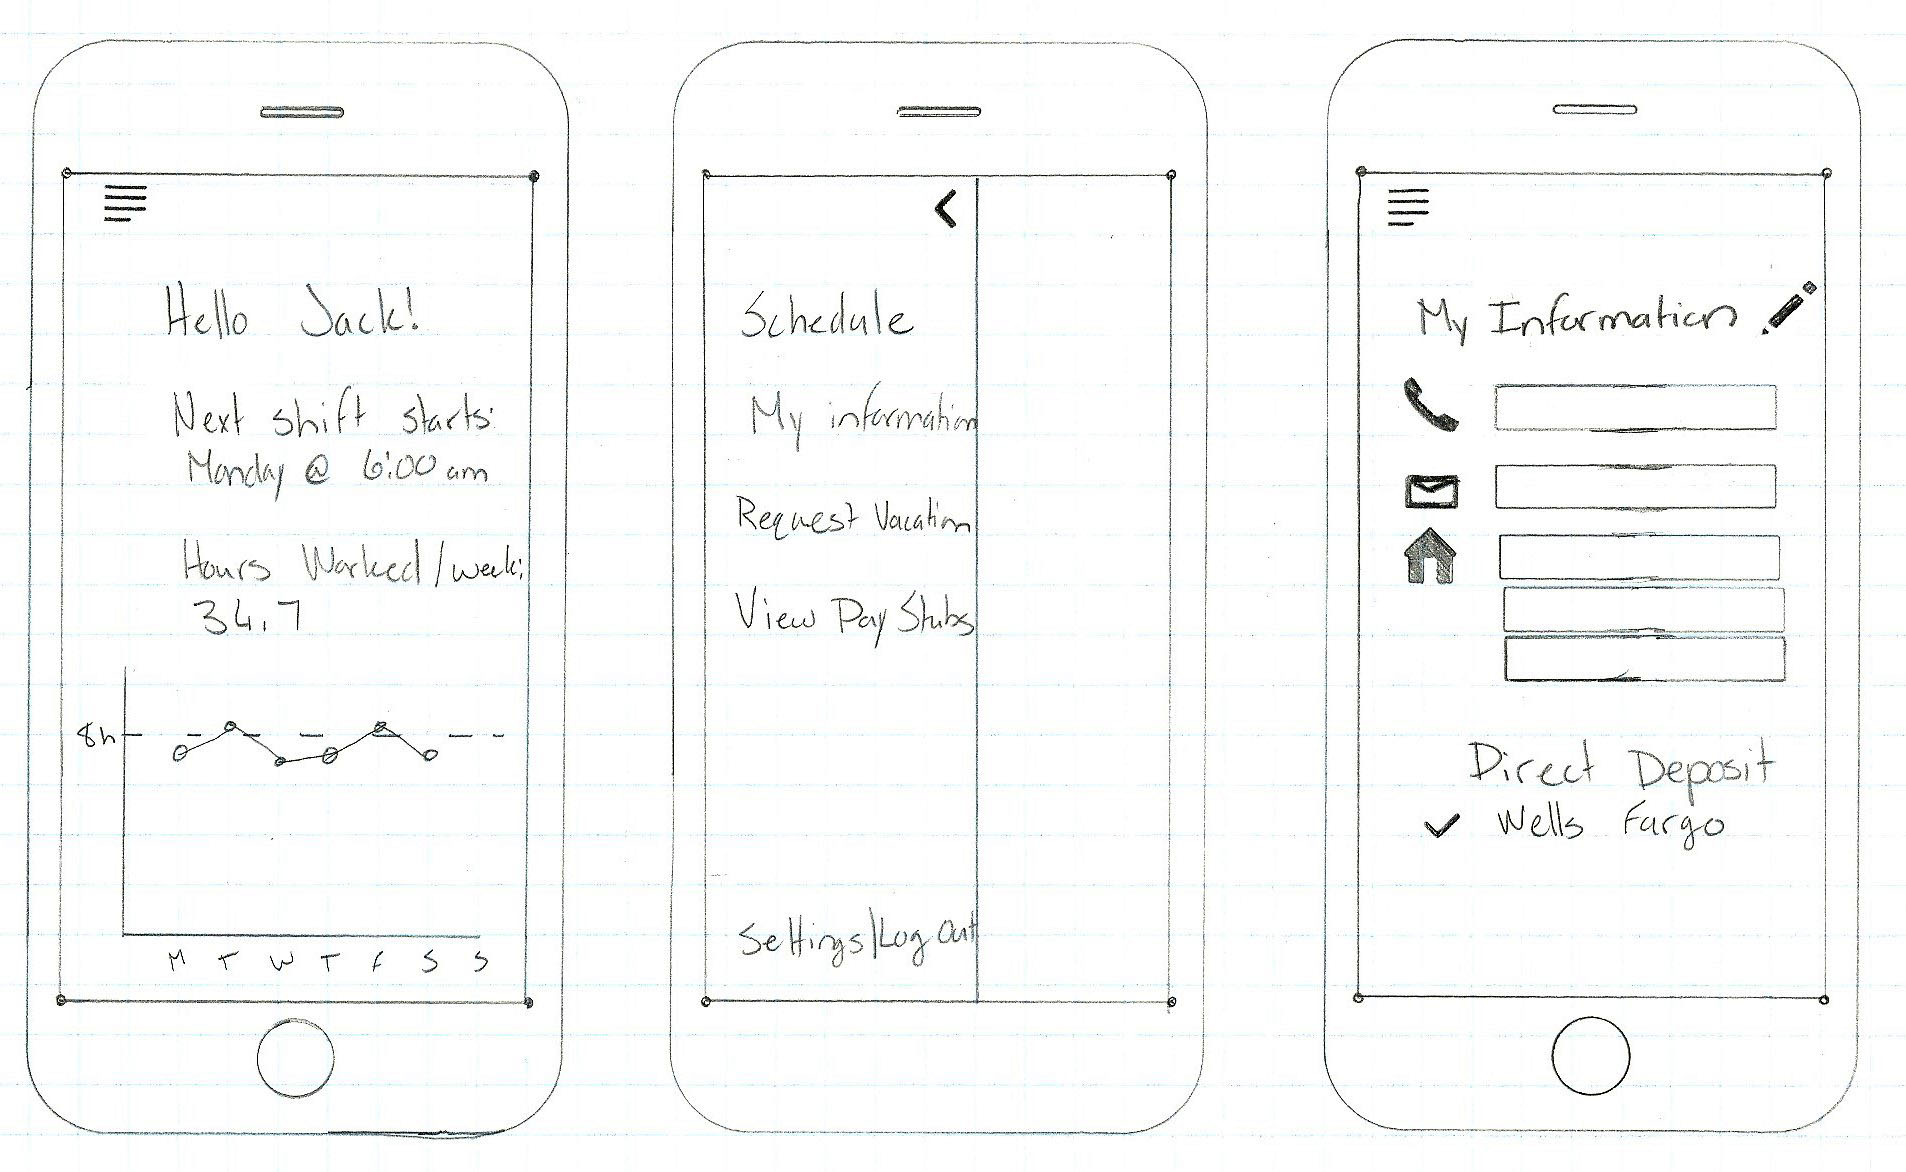 Hello Jack!
Next shift starts:
Monday @ 6:00 am
Hours Worked/week:
34.7
8h
M T W T F S S
Schedule
My information
Request Vacation
View Pay Stubs
Settings/Log Out
My Information
Direct Deposit
✓ Wells Fargo